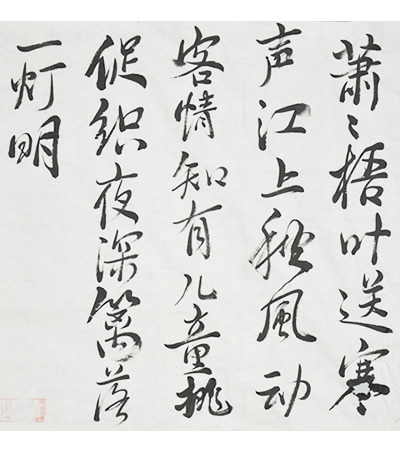 蕭〻梧叶送寒
声江上秋風动
客情知有儿童挑
促織夜深篱落
一灯明